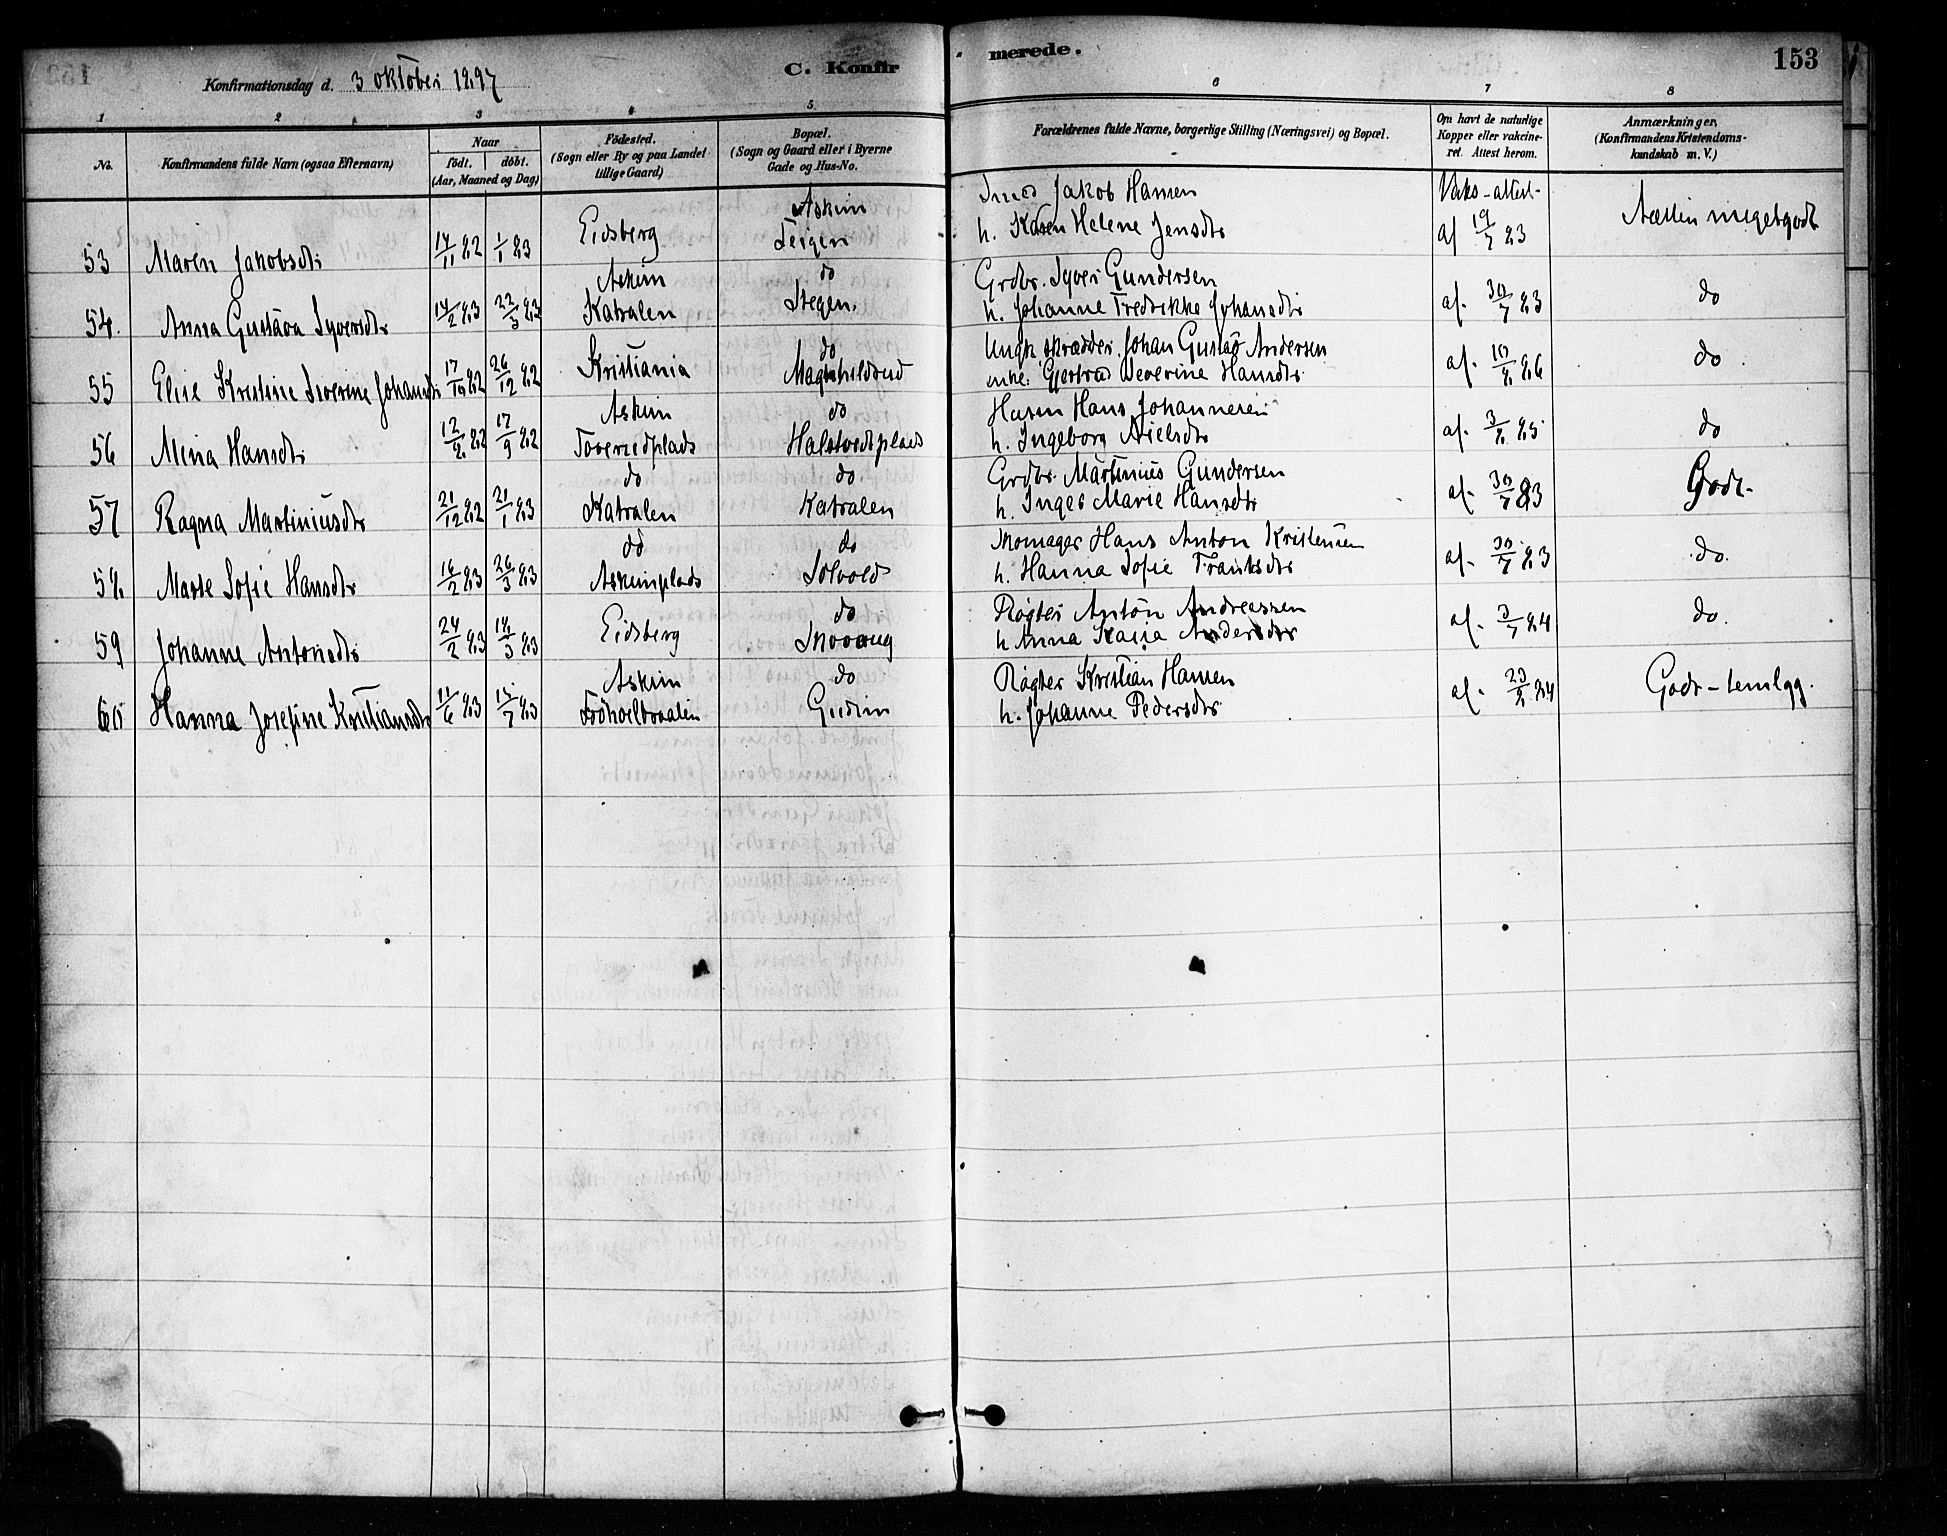 Konfirmationsdag d. 3 oktober 1897
C. Konfirmerede.
153
1 2 3 4 5 6 7 8
No.
Konfirmandens fulde Navn (ogsaa Efternavn)
Naar
født. døbt.
(Aar, Maaned og Dag)
Fødested.
(Sogn eller By og paa Landet
tillige Gaard)
Bopæl.
(Sogn og Gaard eller i Byerne
Gade og Hus-No.
Forældrenes fulde Navne, borgerlige Stilling (Næringsvei) og Bopæl.
Om havt de naturlige
Kopper eller vakcine-
ret. Attest herom.
Anmærkninger,
(Konfirmandens Kristendoms-
kundskab m. V.)
Askim Smed Jakob Hansen Vaks-attest-
53 Maren Jakobsdtr 14/11 82 1/1 83 Eidsberg Teigen h. Karen Helene Jensdtr af 19/7 83 Næsten megetgodt
Askim do Grdbr. Syver Gundersen
54. Anna Gustava Syversdtr 14/2 83 22/3 83 Katralen Stegen h. Johanne Fredrikke Johansdtr af. 30/7 83 do
do Ungk skrædder Johan Gustav Andersen
55 Elise Kristine Severine Johansdtr 17/10 82 26/12 82 Kristiania Magnhildrud enke. Gjertrud Severine Hansdtr af. 10/8 86 do
Askim do Husm Hans Johannesen
56 Mina Hansdtr 12/8 82 17/9 82 Toverudplads Halstvedtplads h. Ingeborg Nielsdtr af. 3/8 85 do
do do Grdbr. Martinius Gundersen
57 Ragna Martiniusdtr 21/12 82 21/1 83 Katralen Katralen h. Inger Marie Hansdtr af. 30/7 83 Godt-
do do Skomager Hans Anton Kristensen
58. Marte Sofie Hansdtr 16/2 83 26/3 83 Askimplads Solvold h. Hanna Sofie Frantsdtr af. 30/7 83 do.
do Røgter Anton Andreassen
59 Johanne Antonsdtr 24/2 83 18/3 83 Eidsberg Skovaug h Anna Kaisa Andersdtr af. 3/7 84 do.
Askim do Røgter Kristian Hansen
60 Hanna Josefine Kristiansdtr 11/6 83 15/7 83 Gudim h. Johanne Pedersdtr af. 23/8 84 Godt-temlgg.